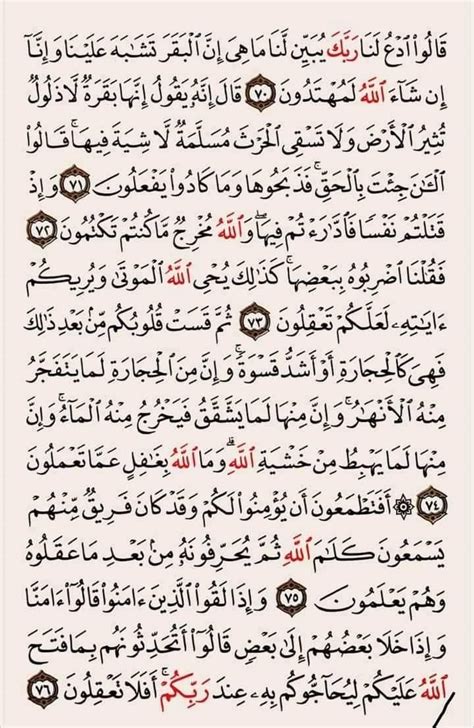 قَالُوا۟ ٱدْعُ لَنَا رَبَّكَ يُبَيِّن لَّنَا مَا هِىَ إِنَّ ٱلْبَقَرَ تَشَـٰبَهَ عَلَيْنَا وَإِنَّآ
إِن شَآءَ ٱللَّهُ لَمُهْتَدُونَ ٧٠ قَالَ إِنَّهُۥ يَقُولُ إِنَّهَا بَقَرَةٌ لَّا ذَلُولٌ
تُثِيرُ ٱلْأَرْضَ وَلَا تَسْقِى ٱلْحَرْثَ مُسَلَّمَةٌ لَّا شِيَةَ فِيهَا ۚ قَالُوا۟
ٱلْـَٔـٰنَ جِئْتَ بِٱلْحَقِّ ۚ فَذَبَحُوهَا وَمَا كَادُوا۟ يَفْعَلُونَ ٧١ وَإِذْ
قَتَلْتُمْ نَفْسًا فَٱدَّٰرَْٰٔتُمْ فِيهَا ۖ وَٱللَّهُ مُخْرِجٌ مَّا كُنتُمْ تَكْتُمُونَ ٧٢
فَقُلْنَا ٱضْرِبُوهُ بِبَعْضِهَا ۚ كَذَٰلِكَ يُحْىِ ٱللَّهُ ٱلْمَوْتَىٰ وَيُرِيكُمْ
ءَايَـٰتِهِۦ لَعَلَّكُمْ تَعْقِلُونَ ٧٣ ثُمَّ قَسَتْ قُلُوبُكُم مِّنۢ بَعْدِ ذَٰلِكَ
فَهِىَ كَٱلْحِجَارَةِ أَوْ أَشَدُّ قَسْوَةً ۚ وَإِنَّ مِنَ ٱلْحِجَارَةِ لَمَا يَتَفَجَّرُ
مِنْهُ ٱلْأَنْهَـٰرُ ۚ وَإِنَّ مِنْهَا لَمَا يَشَّقَّقُ فَيَخْرُجُ مِنْهُ ٱلْمَآءُ ۚ وَإِنَّ
مِنْهَا لَمَا يَهْبِطُ مِنْ خَشْيَةِ ٱللَّهِ ۗ وَمَا ٱللَّهُ بِغَـٰفِلٍ عَمَّا تَعْمَلُونَ
٧٤ ۞ أَفَتَطْمَعُونَ أَن يُؤْمِنُوا۟ لَكُمْ وَقَدْ كَانَ فَرِيقٌ مِّنْهُمْ
يَسْمَعُونَ كَلَـٰمَ ٱللَّهِ ثُمَّ يُحَرِّفُونَهُۥ مِنۢ بَعْدِ مَا عَقَلُوهُ
وَهُمْ يَعْلَمُونَ ٧٥ وَإِذَا لَقُوا۟ ٱلَّذِينَ ءَامَنُوا۟ قَالُوٓا۟ ءَامَنَّا
وَإِذَا خَلَا بَعْضُهُمْ إِلَىٰ بَعْضٍ قَالُوٓا۟ أَتُحَدِّثُونَهُم بِمَا فَتَحَ
ٱللَّهُ عَلَيْكُمْ لِيُحَآجُّوكُم بِهِۦ عِندَ رَبِّكُمْ ۚ أَفَلَا تَعْقِلُونَ ٧٦